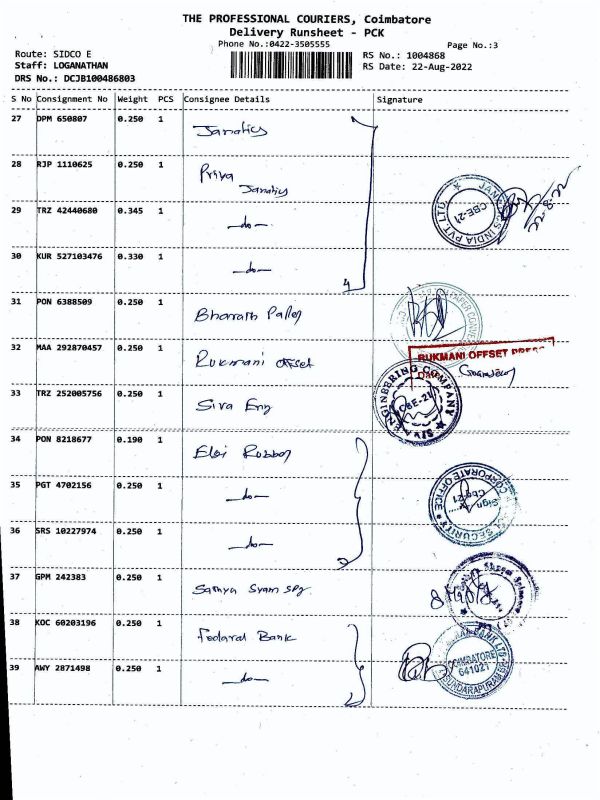 THE PROFESSIONAL COURIERS, Coimbatore
Delivery Runsheet - PCK
Phone No.:0422-3505555
Page No.:3
Route: SIDCO E
RS No.: 1004868
Staff: LOGANATHAN
RS Date: 22-Aug-2022
DRS No.: DCJB100486803
S No Consignment No Weight PCS Consignee Details Signature
27 DPM 650807 0.250 1 Janatics
28 RJP 1110625 0.250 1 Priya
Janatics
29 TRZ 42440680 0.345 1 —do—
CBE-21
INDIA PVT LTD.
22.8.22
30 KUR 527103476 0.330 1 —do—
4
31 PON 6388509 0.250 1 Bharath
32 MAA 292870457 0.250 1 Rukmani offset
RUKMANI OFFSET
33 TRZ 252005756 0.250 1 Siva Eng
SIVA ENGINEERING COMPANY
CBE-21
34 PON 8218677 0.190 1
35 PGT 4702156 0.250 1 —do—
SECURITY
CORPORATE OFFICE
Sign
Cbe-21
36 SRS 10227974 0.250 1 —do—
37 GPM 242383 0.250 1
38 KOC 60203196 0.250 1 Fedaral Bank
BANK LTD
COIMBATORE
641021
SUNDARAPURAM
39 AWY 2871498 0.250 1 —do—